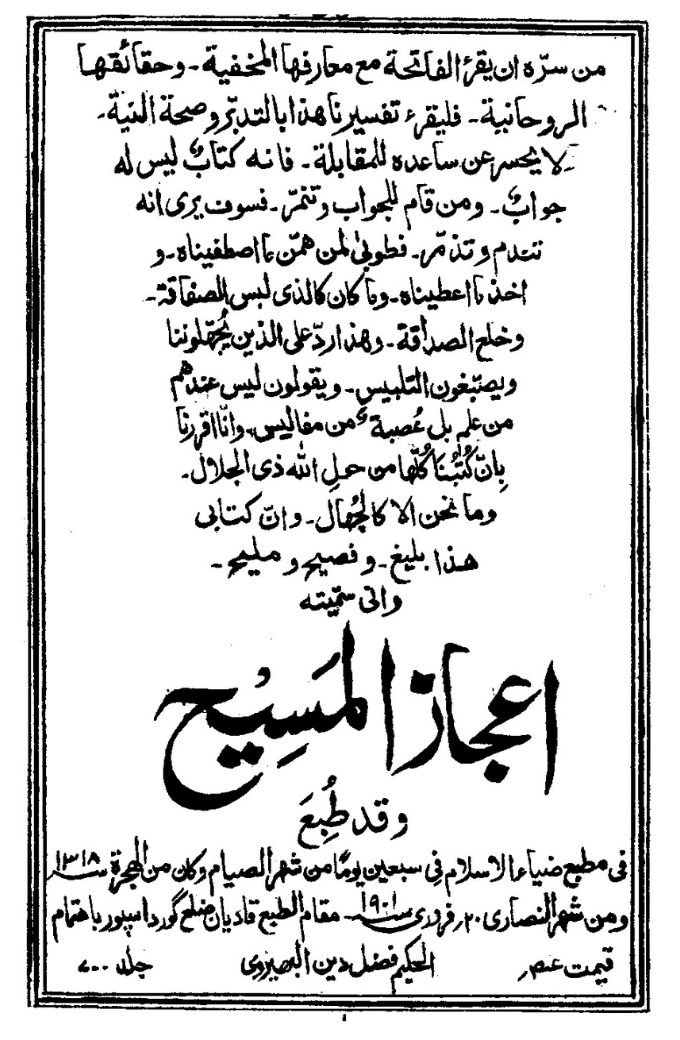 من سرّه ان يقرء الفاتحة مع معارفها المخفية۔ وحقائقها
الروحانية۔ فليقرء تفسيرنا هذا بالتدبّر وصحة النية۔
لا يحسر عن ساعده للمقابلة۔ فانه كتابٌ ليس له
جوابٌ۔ ومن قام للجواب وتنمّر۔ فسوف يرى انه
تندم وتذمّر۔ فطوبىٰ لمن همّن ما اصطفيناه۔ و
اخذ ما اعطيناه۔ وما كان كالذى لبس الصفاقة۔
وخلع الصداقة۔ وهذا ردّ على الذين يُجهّلوننا
ويصبّغون التلبيس۔ ويقولون ليس عندهم
من علم بل عُصبة من مفاليس۔ وانّا اقررنا
بِانّ كُتُبنَا كُلّها من حول الله ذى الجلال۔
وما نحن الا كالجُهّال۔ وانّ كتابى
هذا بليغ۔ وفصيح ومليح۔
وانى سمّيته
اعجاز المَسِيْح
وقد طُبِعَ
فى مطبع ضياء الاسلام فى سبعين يومًا من شهر الصيام وكان من الهجرة سنه ۱۳۱۸
ومن شهر النصارى ۲۰؍ فرورى سنه ۱۹۰۱۔ مقام الطبع قاديان ضلع گورداسپور باهتمام
الحكيم فضل دين البهيروى
قيمت
جلد ۷۰۰